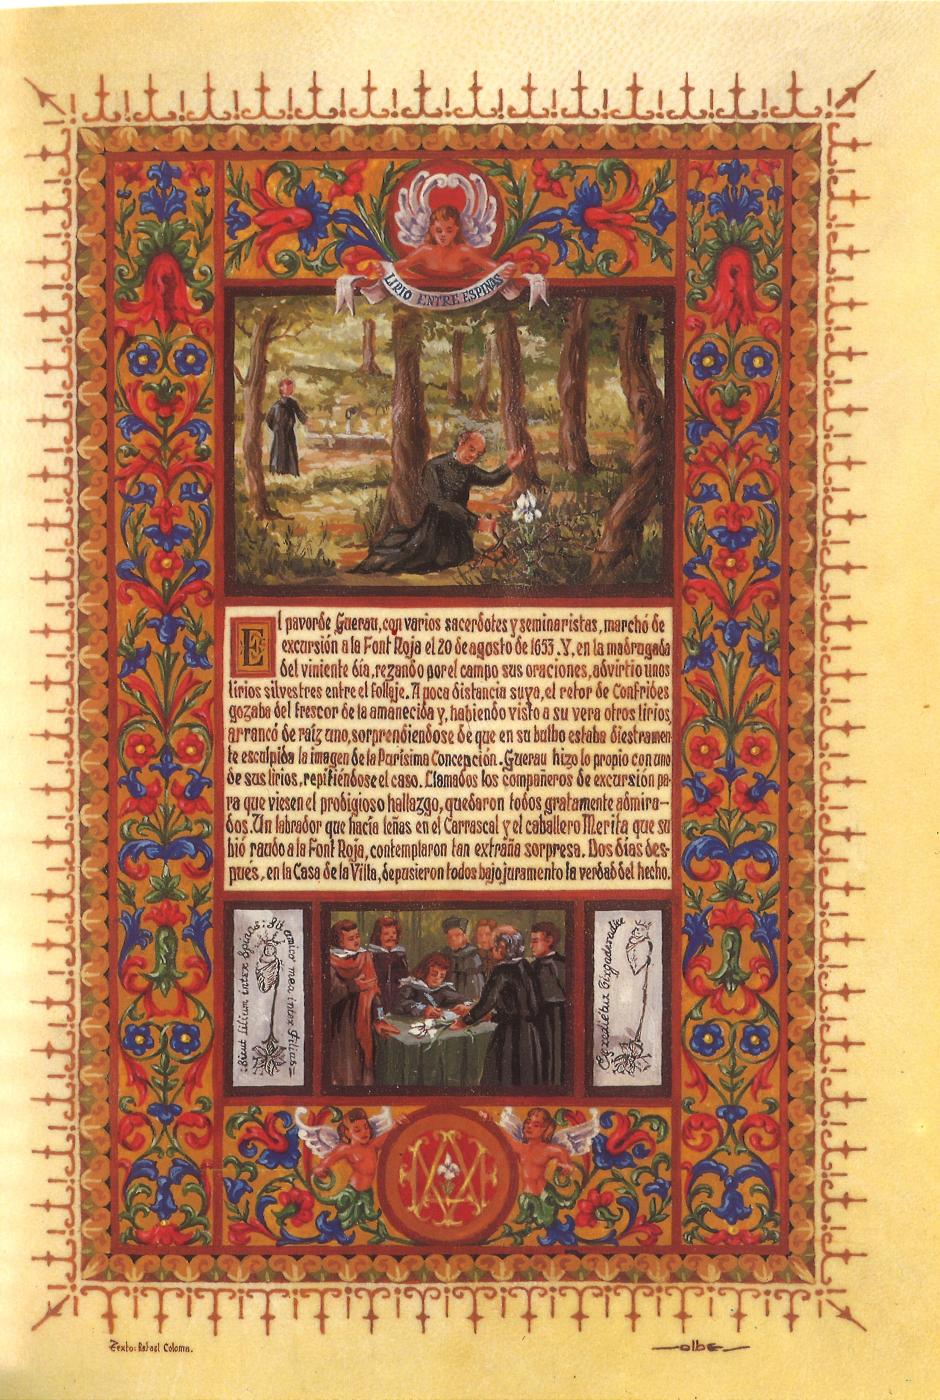 LIRIO ENTRE ESPINAS
El pavorde Guerau, con varios sacerdotes y seminaristas, marchó de
excursión a la Font Roja el 20 de agosto de 1653. Y, en la madrugada
del viniente día, rezando por el campo sus oraciones, advirtió unos
lirios silvestres entre el follaje. A poca distancia suya, el retor de Confrides
gozaba del frescor de la amanecida y, habiendo visto a su vera otros lirios,
arrancó de raíz uno, sorprendiéndose de que en su bulbo estaba diestramen-
te esculpida la imagen de la Purísima Concepción. Guerau hizo lo propio con uno
de sus lirios, repitiéndose el caso. Llamados los compañeros de excursión pa-
ra que viesen el prodigioso hallazgo, quedaron todos gratamente admira-
dos. Un labrador que hacía leñas en el Carrascal y el caballero Merita que su
bió raudo a la Font Roja, contemplaron tan extraña sorpresa. Dos días des-
pués, en la Casa de la Villa, depusieron todos bajo juramento la verdad del hecho.
Sicut lilium inter spinas: Sic amica mea inter filias
Egredietur
Texto: Rafael Coloma.
olbe